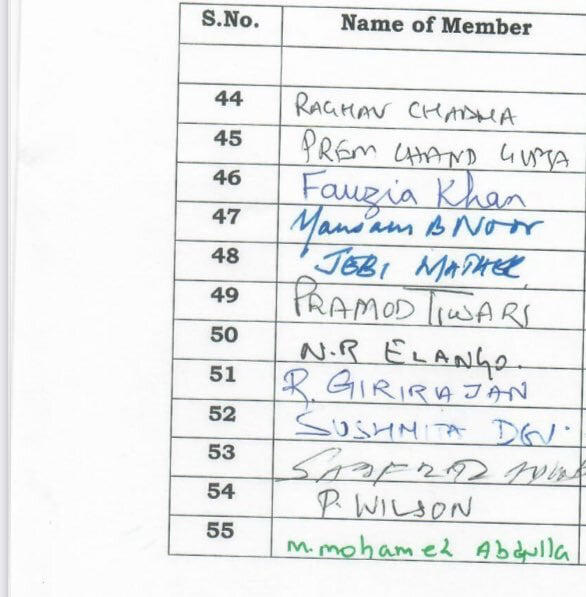 S.No. Name of Member
44 RAGHAV CHADHA
45 PREM CHAND GUPTA
46 Fauzia Khan
47 Mausam B Noor
48 JEBI MATHER
49 PRAMOD TIWARI
50 N.R ELANGO.
51 R. GIRIRAJAN
52 SUSHMITA DEV.
53
54 P. WILSON
55 M. mohamed Abdulla